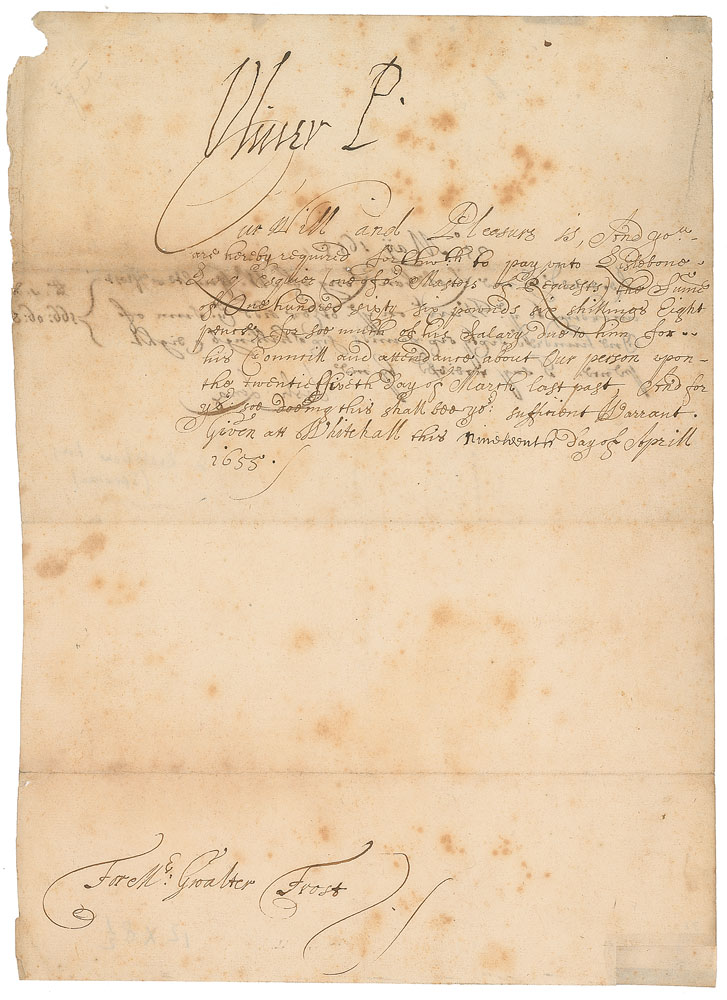 Oliver P.
Our Will and Pleasure is, And you
are hereby required forthwith to pay unto
Long Esquier one of our Masters of Requests the Sume
of One hundred sixty six pounds six shillings Eight
pence, for soe much of his Salary due to him for
his Councill and attendance about Our person upon
the twentie fiveth Day of March last past And for
soe doeing this shall bee yor: sufficient Warrant.
Given att Whitehall this Nineteenth day of Aprill
1655.
For Mr: Gwalter Frost